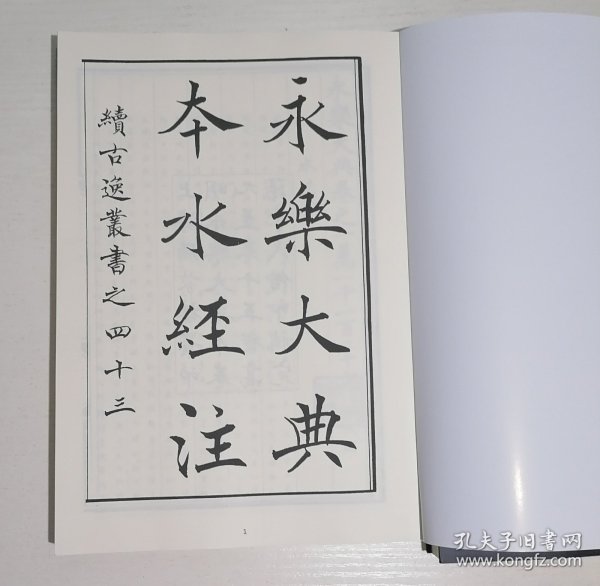 永樂大典
本水經注
續古逸叢書之四十三
1
孔夫子旧书网
www.kongfz.com